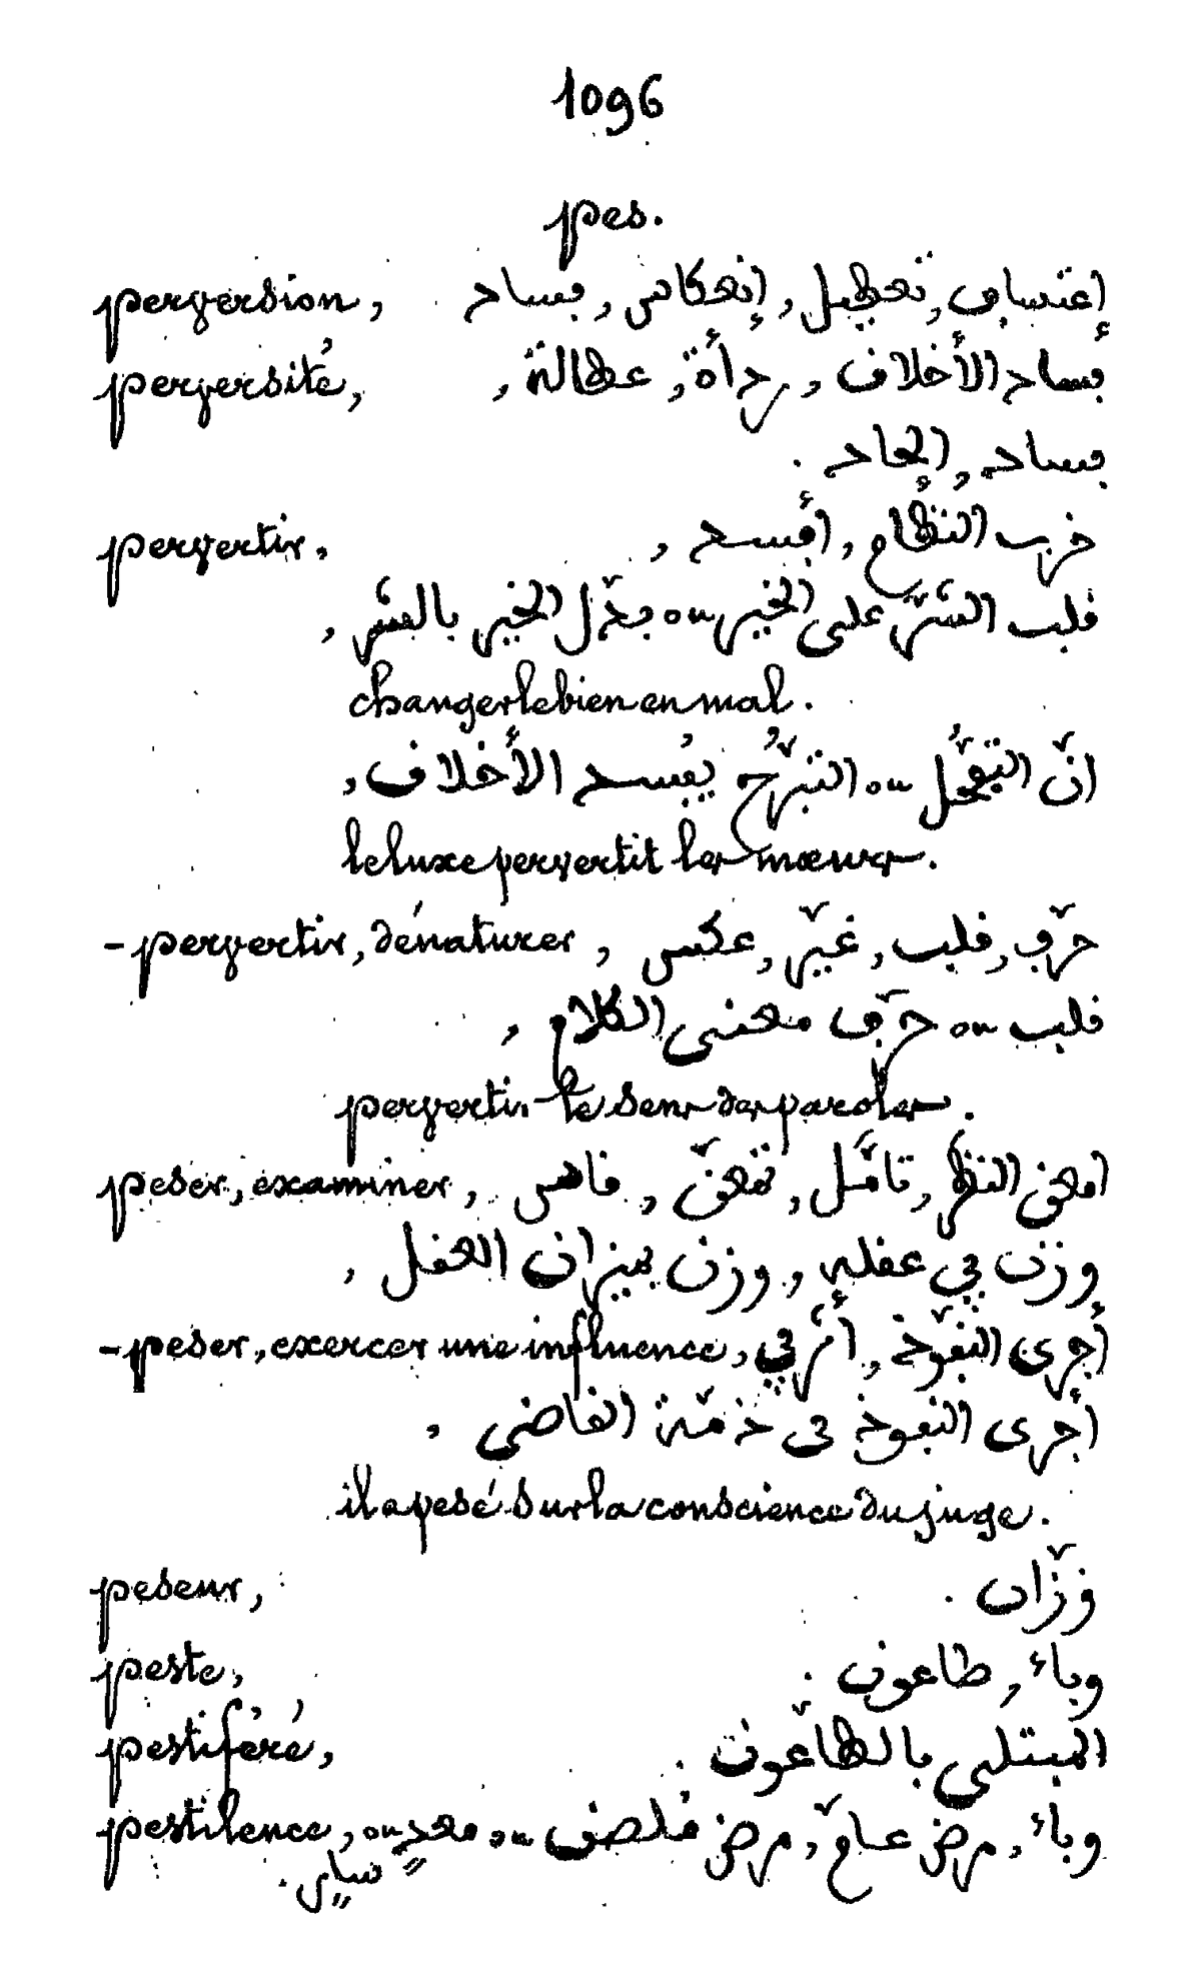 1096
pes.
perversion, إعتساف, تعطيل, إنعكاس, فساد
perversité, فساد الأخلاق, ردأة, عطالة,
فساد, إلحاد.
pervertir, خرب النظام, أفسد,
قلب الشرّ على الخير ou بدّل الخير بالشر,
changer le bien en mal.
انّ ou التبرّج يفسد الأخلاق,
le luxe pervertit les mœurs.
- pervertir, dénaturer, حرّف, قلب, غيّر, عكس
قلب ou حرّف معنى الكلام,
pervertir le sens des paroles.
peser, examiner, امعن النظر, تأمّل, تمعّن, قاس
وزن في عقله, وزن بميزان العقل,
- peser, exercer une influence, أجرى النفوذ, أثّر في
أجرى النفوذ في ذمّة القاضي,
il a pesé sur la conscience du juge.
peseur, وزّان.
peste, وباء, طاعون.
pestiféré, المبتلى بالطاعون.
pestilence, وباء, مرض عامّ, مرض مُلصق ou معدٍ ou
ساري.